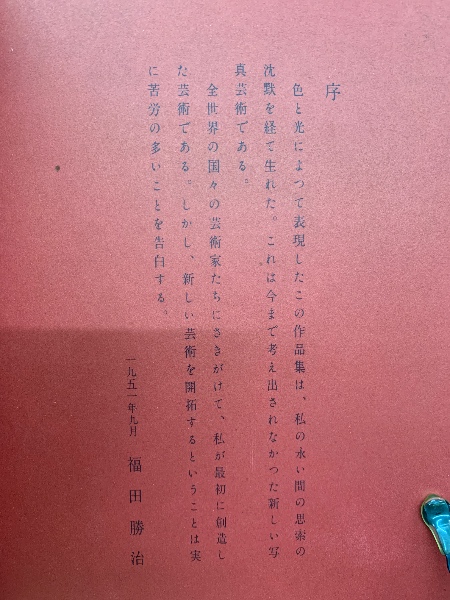 序
色と光によつて表現したこの作品集は、私の永い間の思索の
沈黙を経て生れた。これは今まで考え出されなかつた新しい写
真芸術である。
全世界の国々の芸術家たちにさきがけて、私が最初に創造し
た芸術である。しかし、新しい芸術を開拓するということは実
に苦労の多いことを告白する。
一九五一年九月
福田勝治